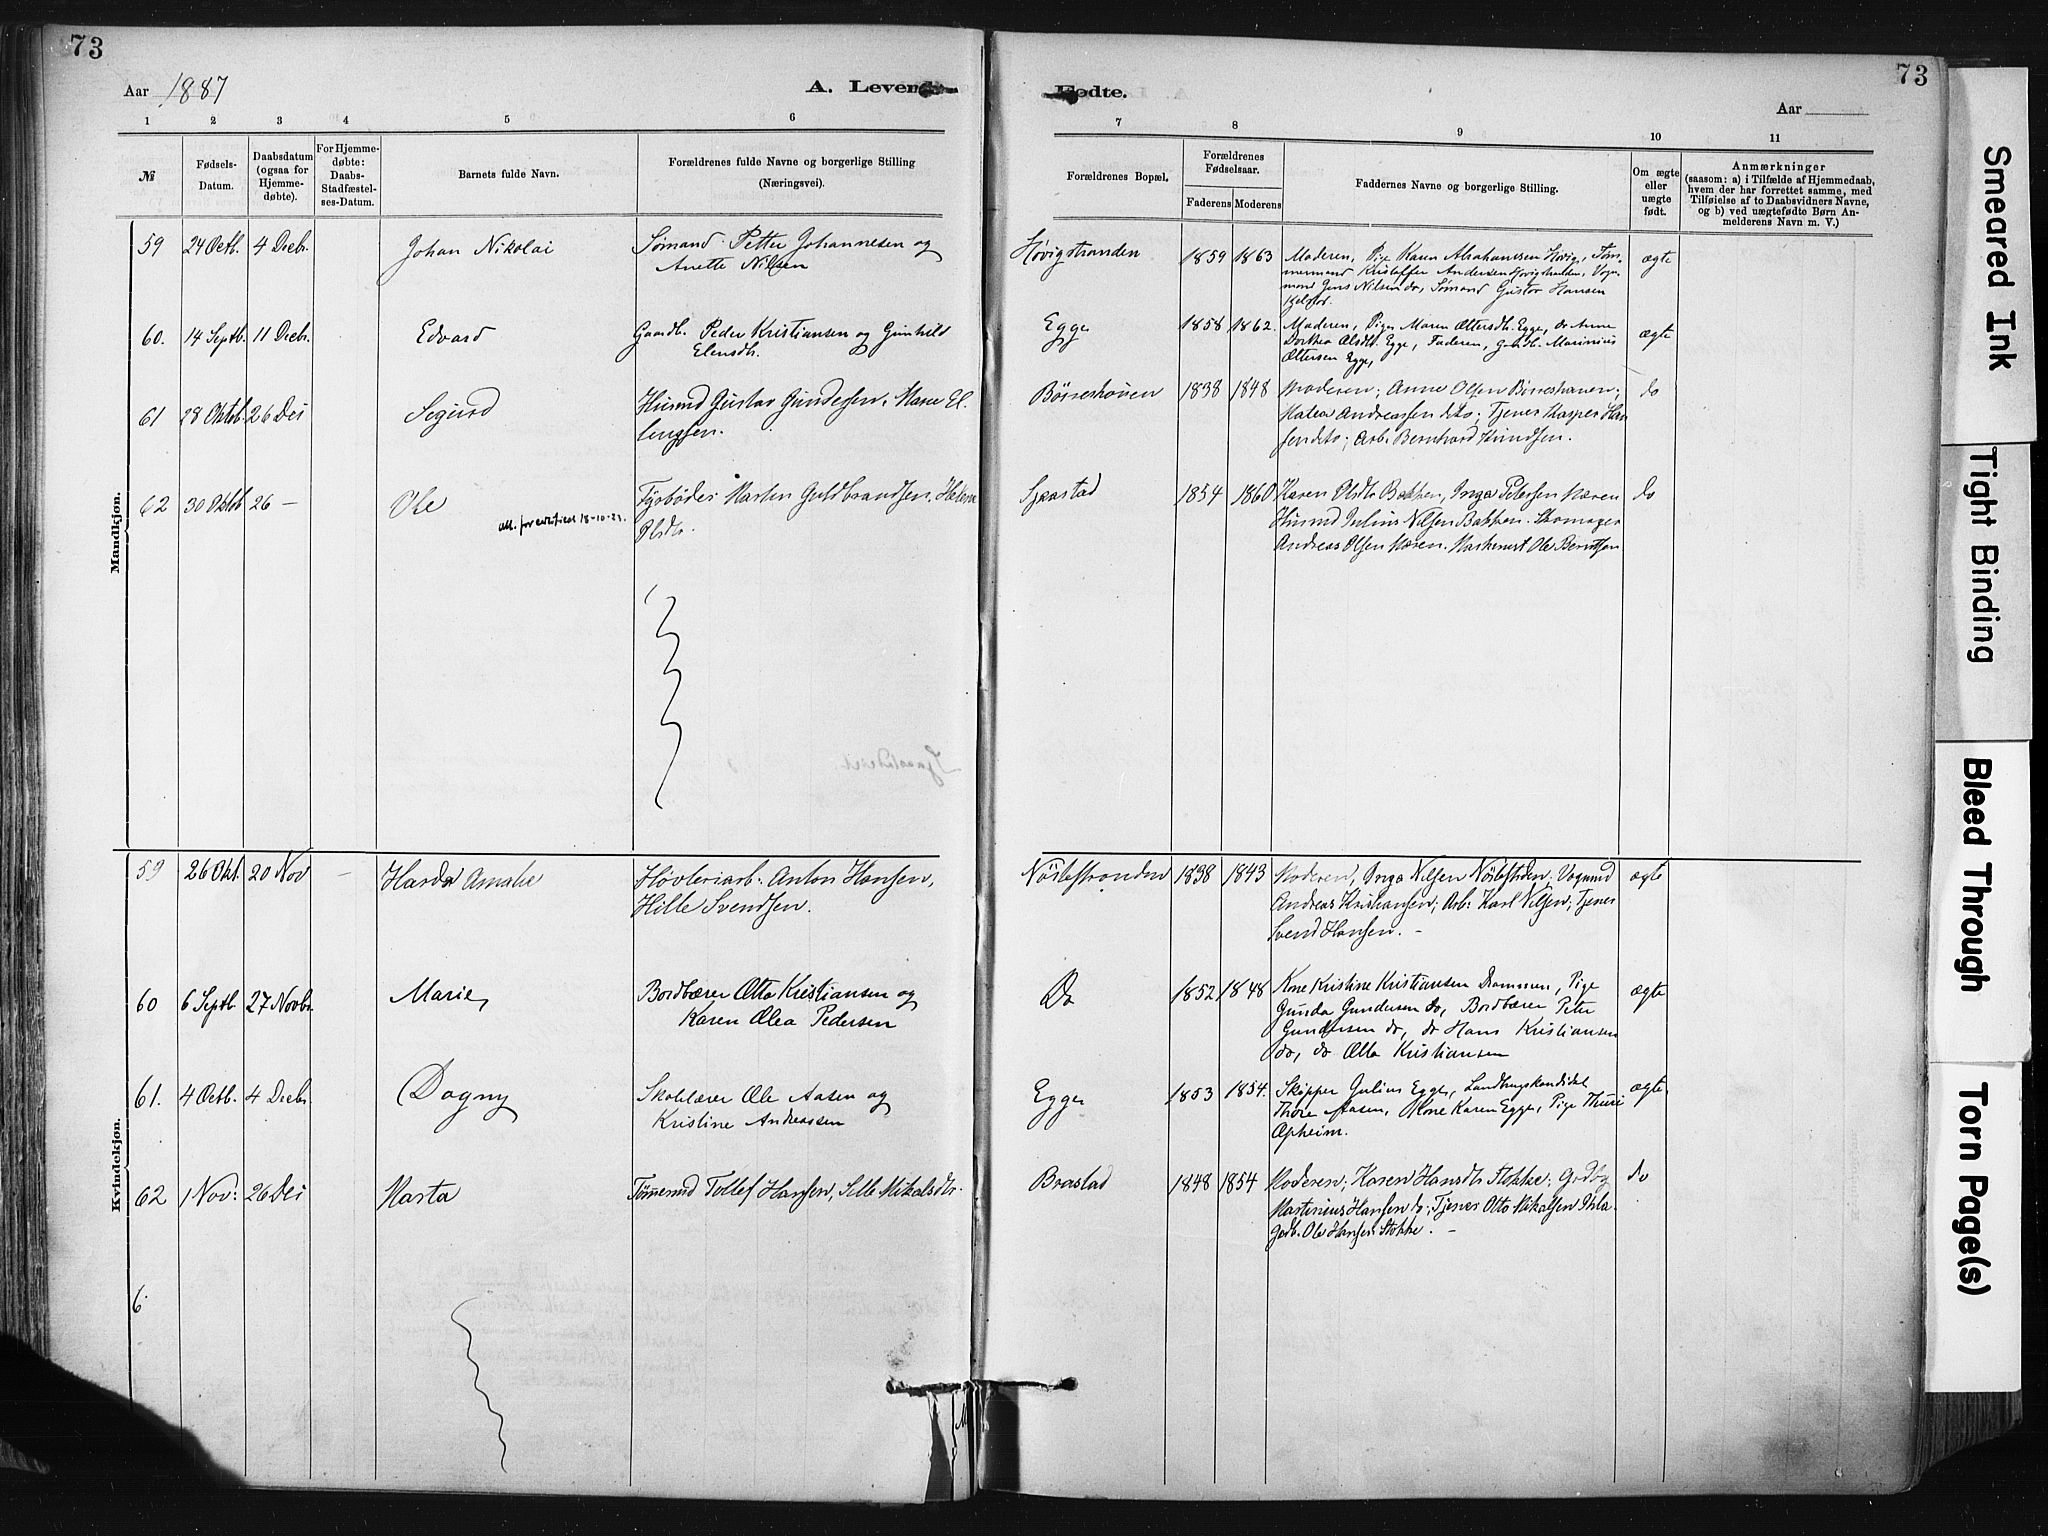 73
73
Aar 1887
A. Levende
Fødte.
Aar
1 2 3 4 5 6
7 8 9 10 11
№
Fødsels-
Datum.
Daabsdatum
(ogsaa for
Hjemme-
døbte).
For Hjemme-
døbte:
Daabs-
Stadfæstel-
ses-Datum.
Barnets fulde Navn.
Forældrenes fulde Navne og borgerlige Stilling
(Næringsvei).
Forældrenes Bopæl.
Forældrenes
Fødselsaar.
Faderens Moderens
Faddernes Navne og borgerlige Stilling.
Om ægte
eller
uægte
født.
Anmærkninger
(saasom: a) i Tilfælde af Hjemmedaab,
hvem der har forrettet samme, med
Tilføielse af to Daabsvidners Navne,
og b) ved uægtefødte Børn An-
melderens Navn m. V.)
Mandkjøn.
59 24 Octb. 4 Decbr. Johan Nikolai Sømand Petter Johannesen og
Anette Nilsen
Høvigstranden 1859 1863 Moderen, Pige Karen Abrahamsen Høvig, Tøm-
mermand Kristoffer Andersen Høvigstranden, Vogn-
mand Jens Nilsen do, Sømand Gustav Hansen
ægte
60. 14 Septb. 11 Decbr. Edvard Gaardb. Peder Kristiansen og Gunhild
Elensdtr.
Egge 1858 1862. Moderen, Pige Maren Ottersdtr. Egge, do Anne
Dorthea Olsdtr. Egge, Faderen, Gaardb. Marinius
Ottersen Egge,
ægte
61 28 Oktob. 26 Dec Sigurd Husmd Gustav Gundersen, Marie El-
lingsen.
Børreshouen 1838 1848 Moderen; Anne Olsen Børreshauen;
Matea Andreassen do; Tjener Kasper Han-
sen do; Arb. Bernhard Knudsen.
do
62 30 Oktob 26 — Ole Fyrbøder Martin Guldbrandsen, Helene
Olsdtr.
Att. for certificat 18-10-23.
Gjæstad 1854 1860 Karen Olsdtr Bakken, Inga Petersen Næren
Husmd Julius Nilsen Bakken. Skomager
Andreas Olsen Næren. Maskinist Ole Berntsen
do
Kvindekjøn.
59 26 Okt. 20 Nov — Harda Amalie Høvleriarb. Anton Hansen,
Hille Svendsen.
Nøstestranden 1838 1843 Moderen, Inga Nilsen Nøstestrden. Vognmd
Andreas Kristiansen; Arb. Karl Nilsen; Tjener
Svend Hansen. —
ægte
60 6 Septb. 27 Novbr. Marie, Bordbærer Otto Kristiansen og
Karen Olea Pedersen
Do 1852 1848 Kone Kristine Kristiansen Drammen, Pige
Gunda Gundersen do, Bordbærer Peter
Gundersen do, do Hans Kristiansen
do, do Otto Kristiansen
ægte
61. 4 Octb. 4 Decbr. Dagny Skolelærer Ole Aasen og
Kristine Andreassen
Egge 1853 1854. Skipper Julius Egge, Landbrugskandidat
Thore Aasen, Kone Karen Egge, Pige Thuri
Opheim.
ægte
62 1 Nov: 26 Dec Marta Tømmermd Tollef Hansen, Sille Mikalsdtr.
Brastad 1848 1854 Moderen; Karen Hansdtr Stokke; Gdbr
Martinius Hansen do; Tjener Otto Mikalsen Ihla
Gdb. Ole Hansen Stokke. —
do
6
Smeared Ink
Tight Binding
Bleed Through
Torn Page(s)